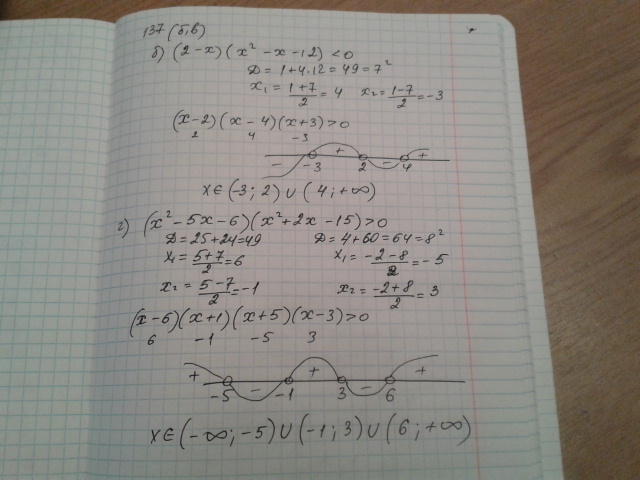 137 (б,в)
б) (2-x)(x²-x-12) <0
D = 1+4·12 = 49 = 7²
x₁ = (1+7)/2 = 4  x₂ = (1-7)/2 = -3
(x-2)(x-4)(x+3)>0
2  4  -3
-  +  -  +
-3  2  4
x∈(-3; 2)∪(4; +∞)
г) (x²-5x-6)(x²+2x-15)>0
D = 25+24=49  D = 4+60=64=8²
x₁ = (5+7)/2 = 6  x₁ = (-2-8)/2 = -5
x₂ = (5-7)/2 = -1  x₂ = (-2+8)/2 = 3
(x-6)(x+1)(x+5)(x-3)>0
6  -1  -5  3
+  -  +  -  +
-5  -1  3  6
x∈(-∞; -5)∪(-1; 3)∪(6; +∞)